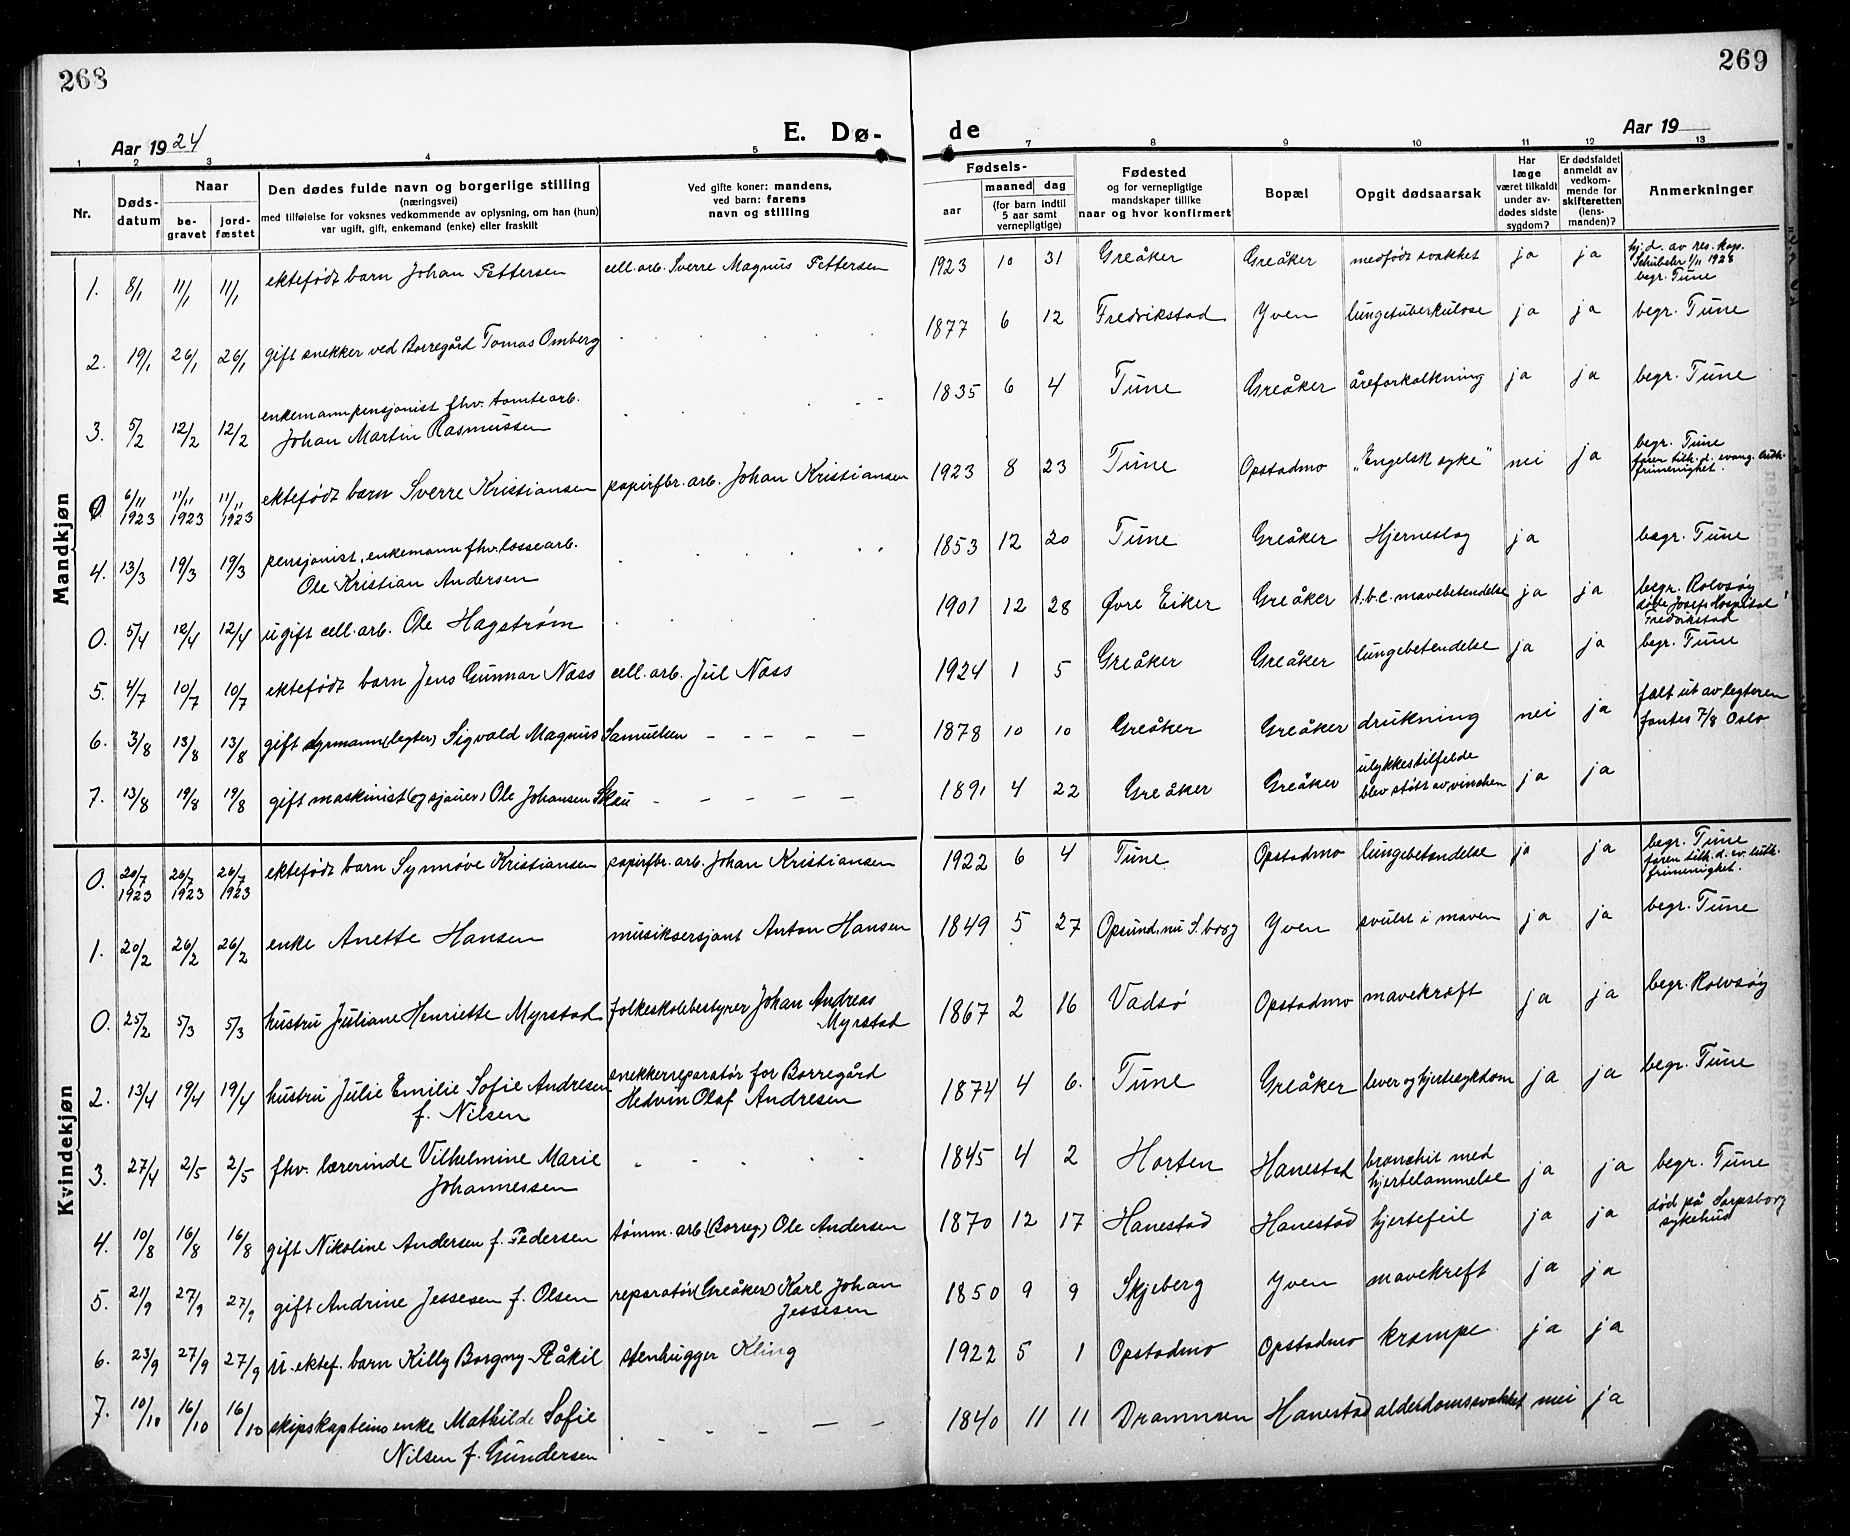 268
269
Aar 1924
E. Dø-
de
Aar 19
1 2 3 4 5 6 7 8 9 10 11 12 13
Nr.
Døds-
datum
Naar
be-
gravet
jord-
fæstet
Den dødes fulde navn og borgerlige stilling
(næringsvei)
med tilføielse for voksnes vedkommende av oplysning, om han (hun)
var ugift, gift, enkemand (enke) eller fraskilt
Ved gifte koner: mandens,
ved barn: farens
navn og stilling
Fødsels-
aar
maaned
dag
(for barn indtil
5 aar samt
vernepligtige)
Fødested
og for vernepligtige
mandskaper tillike
naar og hvor konfirmert
Bopæl
Opgit dødsaarsak
Har
læge
været tilkaldt
under av-
dødes sidste
sygdom?
Er dødsfaldet
anmeldt av
vedkom-
mende for
skifteretten
(lens-
manden)?
Anmerkninger
Mandkjøn
1. 8/1 11/1 11/1 ektefødt barn Johan Pettersen cell. arb. Sverre Magnus Pettersen 1923 10 31 Greåker Greåker medfødt svakhet ja ja hj. d. av res. kap.
Schübeler 1/11 1923
begr. Tune
2. 19/1 26/1 26/1 gift snekker ved Borregård Tomas Omberg 1877 6 12 Fredrikstad Yven lungetuberkulose ja ja begr. Tune
3. 5/2 12/2 12/2 enkemann pensjonist fhv. tomtearb.
Johan Martin Rasmussen 1835 6 4 Tune Greåker åreforkalkning ja ja begr. Tune
0 6/11 1923 11/11 1923 11/11 1923 ektefødt barn Sverre Kristiansen papirfbr. arb. Johan Kristiansen 1923 8 23 Tune Opstadmo "Engelsk syke" nei ja begr. Tune
faren tilh. d. evang. luth.
frimenighet.
4. 13/3 19/3 19/3 pensjonist, enkemann fhv. lossearb.
Ole Kristian Andersen 1853 12 20 Tune Greåker Hjerneslag ja begr. Tune
0. 5/4 12/4 12/4 ugift cell. arb. Ole Hagstrøm 1901 12 28 Øvre Eiker Greåker t.b.c. mavebetendelse ja ja begr. Rolvsøy
døde Josefs Hospital
Fredrikstad
5. 4/7 10/7 10/7 ektefødt barn Jens Gunnar Næss cell. arb. Jul Næss 1924 1 5 Greåker Greåker lungebetendelse ja ja begr. Tune
6. 3/8 13/8 13/8 gift styrmann (legter) Sigvald Magnus Samuelsen 1878 10 10 Greåker Greåker drukning nei ja falt ut av legteren
fantes 7/8 Oslo
7. 13/8 19/8 19/8 gift maskinist (og sjauer) Ole Johansen Skau 1891 4 22 Greåker Greåker ulykkestilfelde
blev støtt av vinchen ja ja
Kvindekjøn
0. 20/7 1923 26/7 1923 26/7 1923 ektefødt barn Synnøve Kristiansen papirfbr. arb. Johan Kristiansen 1922 6 4 Tune Opstadmo lungebetendelse ja ja begr. Tune
faren tilh. d. ev. luth.
frimenighet.
1. 20/2 26/2 26/2 enke Anette Hansen musiksersjant Anton Hansen 1849 5 27 Opsund, nu S.borg Yven svulst i maven ja ja begr. Tune
0. 25/2 5/3 5/3 hustru Juliane Henriette Myrstad folkeskolebestyrer Johan Andreas
Myrstad 1867 2 16 Vadsø Opstadmo mavekræft ja ja begr. Rolvsøy
2. 13/4 19/4 19/4 hustru Julie Emilie Sofie Andresen
f. Nilsen snekkerreparatør for Borregård
Hedvin Olaf Andresen 1874 4 6. Tune Greåker lever og hjertesykdom ja ja begr. Tune
3. 27/4 2/5 2/5 fhv. lærerinde Vilhelmine Marie
Johannessen 1845 4 2 Horten Hanestad bronchit med
hjertelammelse ja ja begr. Tune
4. 10/8 16/8 16/8 gift Nikoline Andersen f. Pedersen tømm. arb. (Borreg) Ole Andersen 1870 12 17 Hanestad Hanestad hjertefeil ja ja død på Sarpsborg
sykehus
5. 21/9 27/9 27/9 gift Andrine Jessesen f. Olsen reparatør (Greåker) Karl Johan
Jessesen 1850 9 9 Skjeberg Yven mavekreft ja ja
6. 23/9 27/9 27/9 u. ektef. barn Killy Borgny Råkil stenhugger Kling 1922 5 1 Opstadmo Opstadmo krampe ja ja
7. 10/10 16/10 16/10 skipskapteins enke Mathilde Sofie
Nilsen f. Gundersen 1840 11 11 Drammen Hanestad alderdomssvakhet nei ja